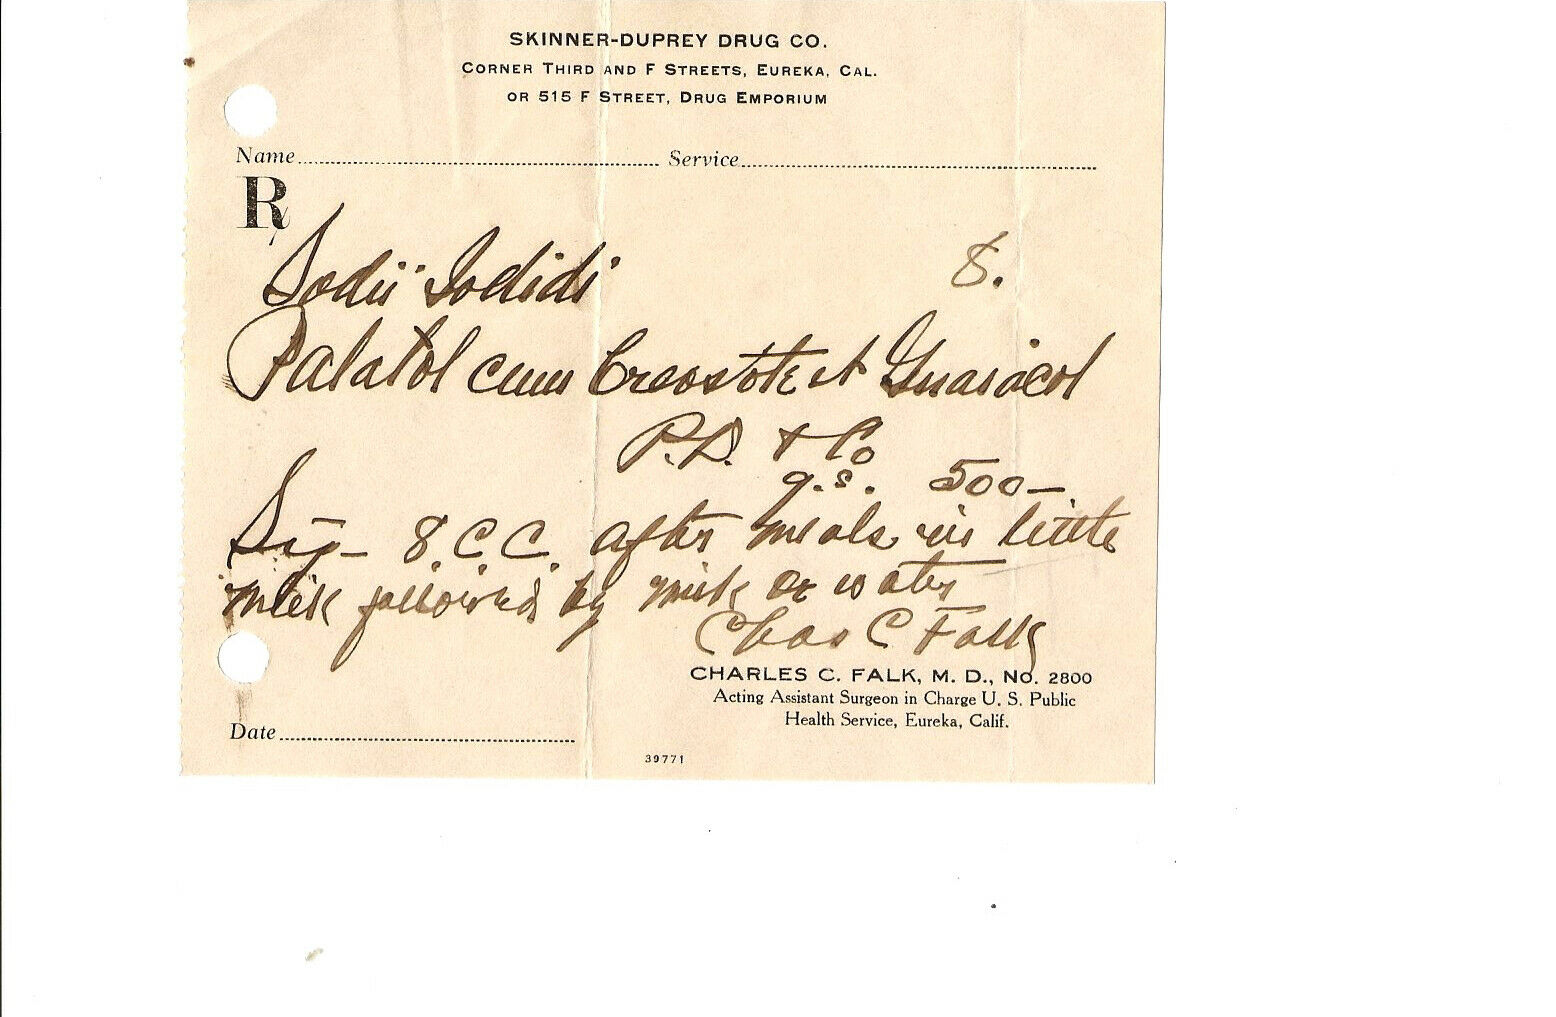 SKINNER-DUPREY DRUG CO.
CORNER THIRD AND F STREETS, EUREKA, CAL.
OR 515 F STREET, DRUG EMPORIUM
Name Service
R
Sodii Iodidi 8.
Palatol cum Creosote et Guaiacol
P.D. & Co
q.s. 500—
Sig— 8.C.C. after meals in little
milk followed by milk or water
Chas C Falk
CHARLES C. FALK, M. D., No. 2800
Acting Assistant Surgeon in Charge U. S. Public
Health Service, Eureka, Calif.
Date
39771